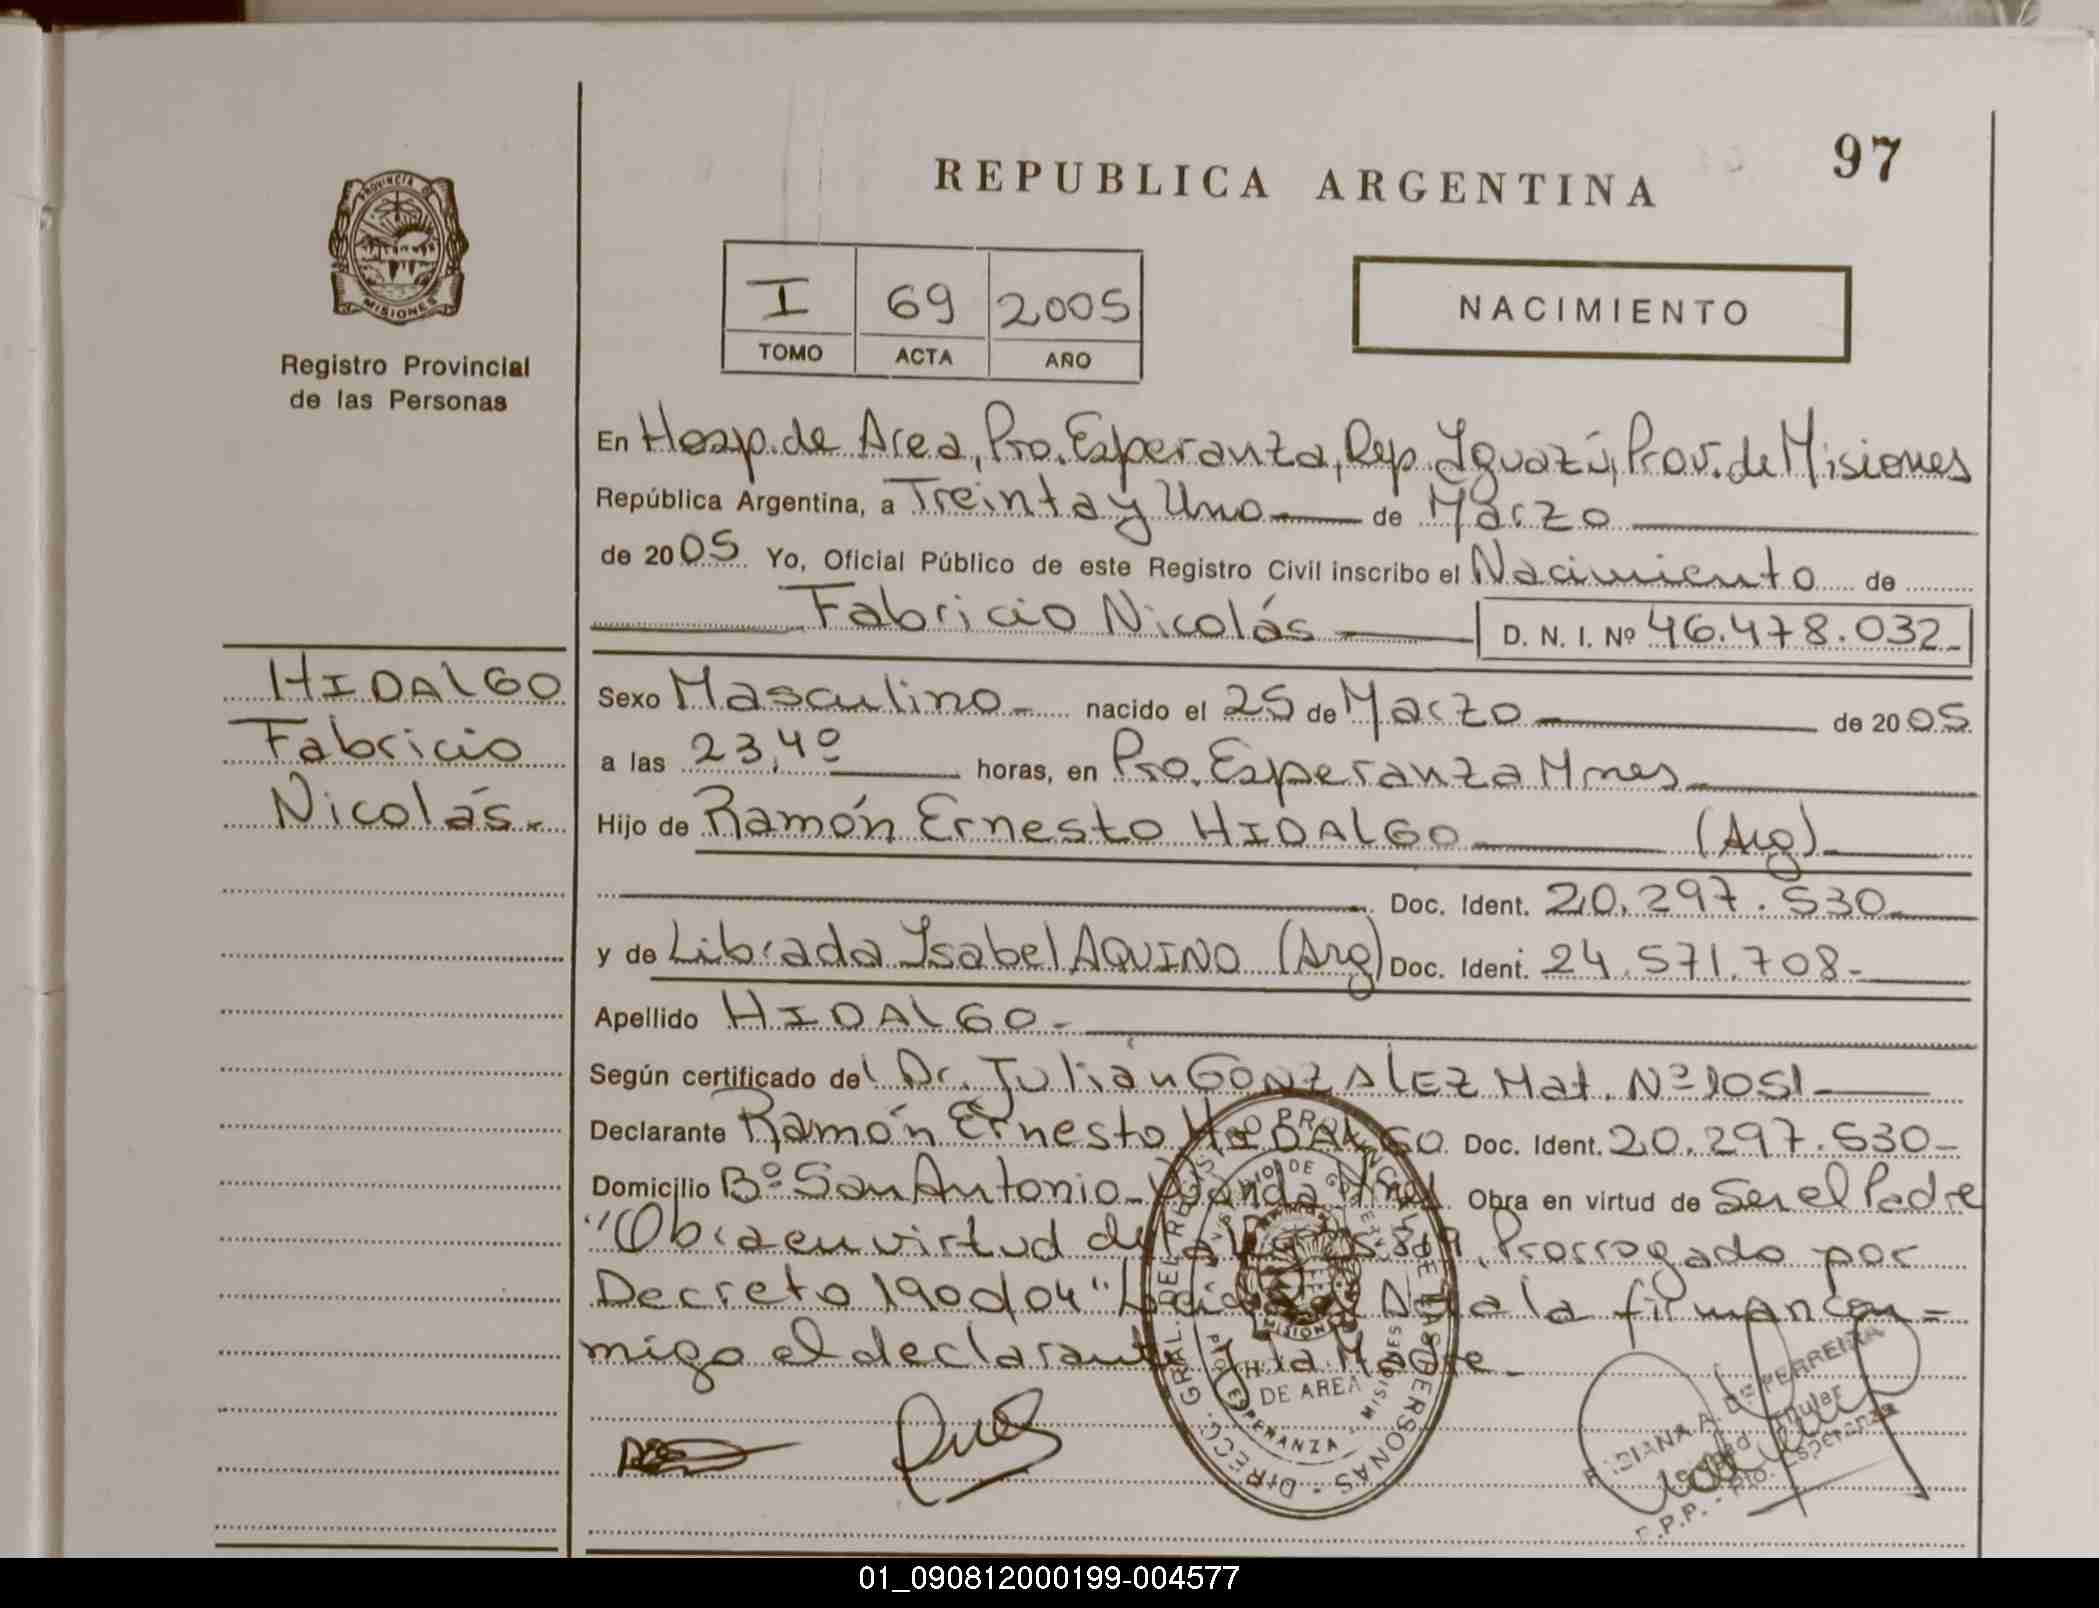 97
REPUBLICA ARGENTINA
PROVINCIA DE
MISIONES
Registro Provincial
de las Personas
I 69 2005
TOMO ACTA AÑO
NACIMIENTO
En Hosp. de Area, Pto. Esperanza, Dep. Iguazú, Prov. de Misiones
República Argentina, a Treinta y Uno de Marzo
de 2005 Yo, Oficial Público de este Registro Civil inscribo el Nacimiento de
Fabricio Nicolás D. N. I. Nº 46.478.032
HIDALGO
Fabricio
Nicolás.
Sexo Masculino nacido el 25 de Marzo de 2005
a las 23,40 horas, en Pto. Esperanza Mnes
Hijo de Ramón Ernesto HIDALGO (Arg)
Doc. Ident. 20.297.530
y de Librada Ysabel AQUINO (Arg) Doc. Ident. 24.571.708
Apellido HIDALGO
Según certificado del Dr. Julián GONZALEZ Mat. Nº 1051
Declarante Ramón Ernesto HIDALGO Doc. Ident. 20.297.530
Domicilio Bº San Antonio - Wanda Mnes. Obra en virtud de Ser el Padre
"Obra en virtud de la Prorrogado por
Decreto 190d/04" Leída el Acta la firman con=
migo el declarante y la Madre
DIRECC. GRAL. DEL REGISTRO PROVINCIAL DE LAS PERSONAS
DE AREA
ESPERANZA - MISIONES
A. DE FERREIRA
Titular
Pto. Esperanza
01_090812000199-004577